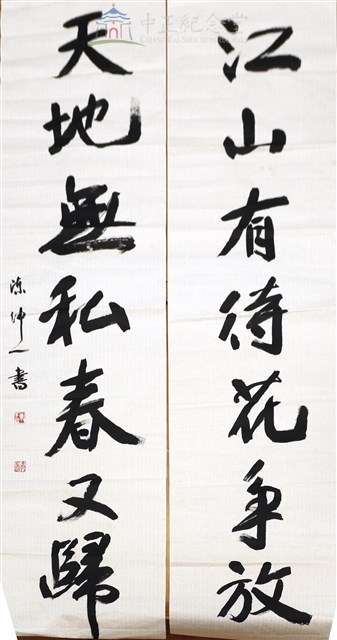 江山有待花爭放
天地無私春又歸
陳仲一書
中正紀念堂